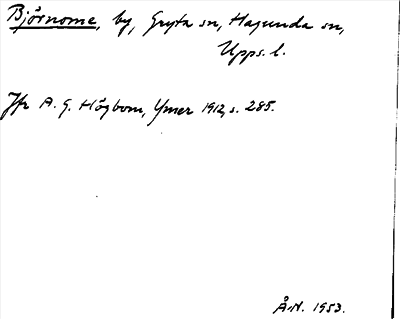 Björnome, by, Gryta sn, Hagunda sn,
Upps. l.
Jfr A. G. Högbom, Ymer 1912, s. 285.
Å.N. 1953.